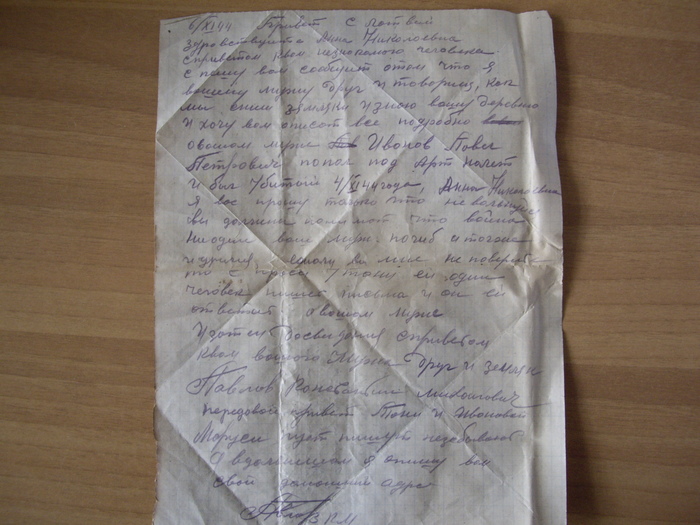 6/XI 44 Привет с Латвии
Здравствуйте Анна Николаевна
с приветом к вам незнакомого человека
спешу вам сообщит о том что я
вашему мужу друг и товарищ, как
ми сним земляки и знаю вашу деревню
и хочу вам описат все подробно
о вашом муже Иванов Павел
Петрович попал под Арт налет
и был убитый 4/XI 44 года, Анна Николаевна
я вас прошу только что не волнуйтес
вы должны понимат что война
Ниодин ваш муж погиб а тысячи
и другия, если ви мне не поверите
то спроси у тони ей один
человек пишет письма и он ей
ответит о вашом муже
И затем Досвидания с приветом
к вам вашого мужа друг и земляк
Павлов Константин Михайлович
передовай привет Тони и Ивановой
Маруси пуст пишут незабывают
А в дальнешам я опишу вам
свой домашний адрес